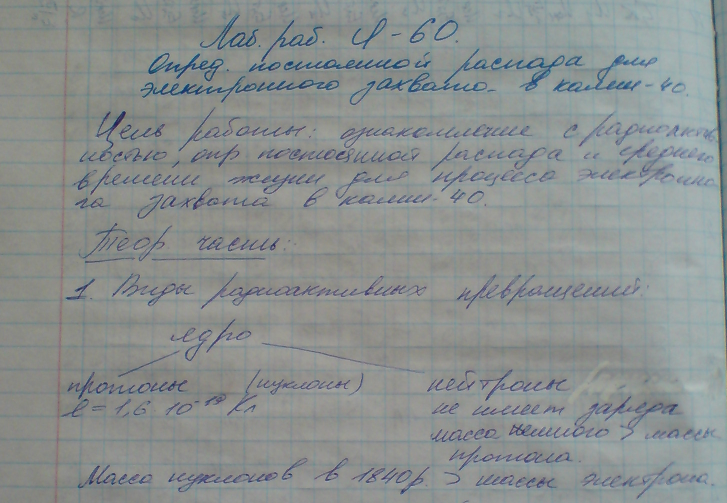 Лаб. раб. Я-60.
Опред. постоянной распада для
электронного захвата в калии-40.
Цель работы: ознакомление с радиоактив
ностью, опр постоянной распада и среднего
времени жизни для процесса электронно
га захвата в калии-40.
Теор часть:
1. Виды радиоактивных превращений:
ядро
протоны (нуклоны) нейтроны
e = 1,6 10⁻¹⁹ Кл не имеет заряда
масса немного > массы
протона.
Масса нуклонов в 1840р. > массы электрона.